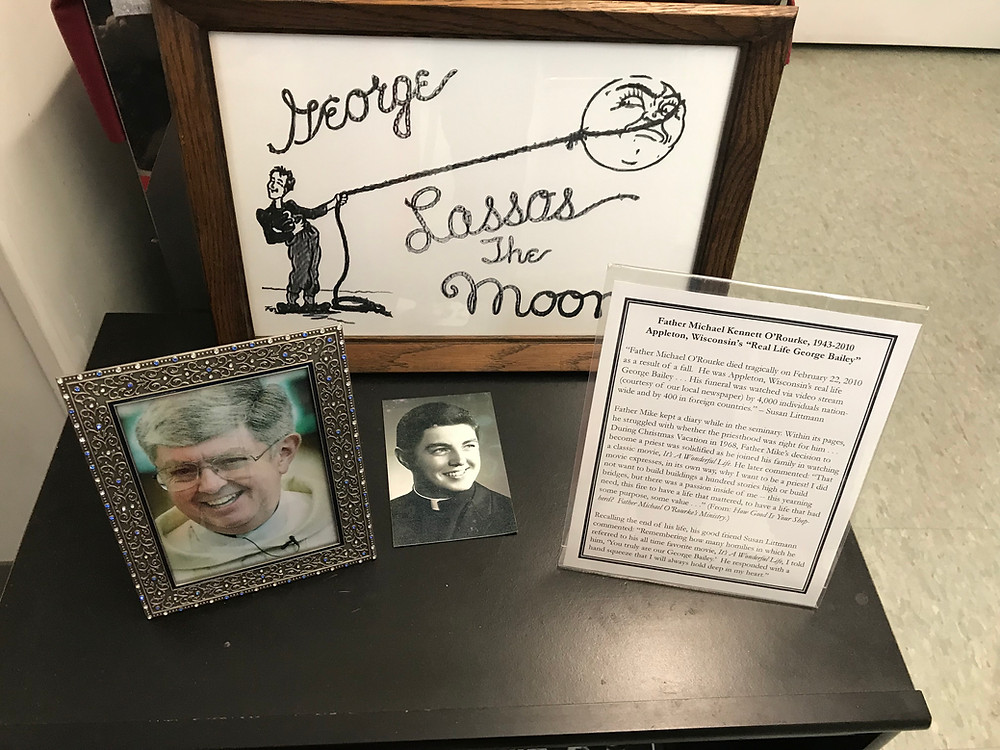 George
Lassos
The
Moon
Father Michael Kennett O'Rourke, 1943-2010
Appleton, Wisconsin's "Real Life George Bailey"
"Father Michael O'Rourke died tragically on February 22, 2010
as a result of a fall. He was Appleton, Wisconsin's real life
George Bailey . . . His funeral was watched via video stream
(courtesy of our local newspaper) by 4,000 individuals nation-
wide and by 400 in foreign countries." – Susan Littmann
Father Mike kept a diary while in the seminary. Within its pages,
he struggled with whether the priesthood was right for him . . .
During Christmas Vacation in 1968, Father Mike's decision to
become a priest was solidified as he joined his family in watching
a classic movie, It's A Wonderful Life. He later commented: "That
movie expresses, in its own way, why I want to be a priest! I did
not want to build buildings a hundred stories high or build
bridges, but there was a passion inside of me – this yearning
need, this fire to have a life that mattered, to have a life that had
some purpose, some value . . ." (From: How Good Is Your Shep-
herd? Father Mike O'Rourke's Ministry.)
Recalling the end of his life, his good friend Susan Littmann
commented: "Remembering how many homilies in which he
referred to his all time favorite movie, It's A Wonderful Life, I told
him, 'You truly are our George Bailey.' He responded with a
hand squeeze that I will always hold deep in my heart."